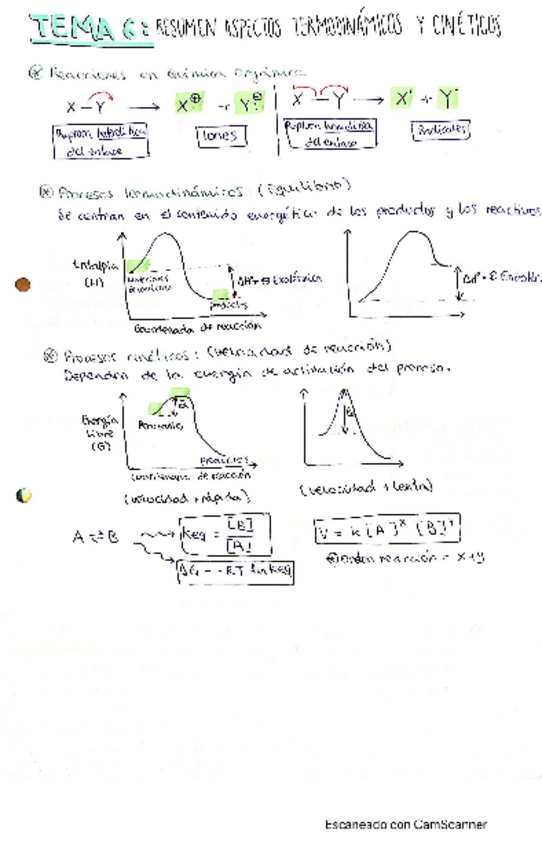 TEMA 6: RESUMEN ASPECTOS TERMODINÁMICOS Y CINÉTICOS
Reacciones en Química Orgánica
X – Y → X⊕ + Y:⊖
X – Y → X· + Y·
Ruptura heterolítica del enlace
Iones
Ruptura homolítica del enlace
Radicales
Procesos termodinámicos (Equilibrio)
Se centran en el contenido energético de los productos y los reactivos
Entalpía (H)
productos
ΔH° = ⊖ Exotérmica
Coordenada de reacción
ΔH° = ⊕ Endotér.
Procesos cinéticos: (velocidades de reacción)
Dependen de la energía de activación del proceso.
Energía libre (G)
Ea
Coordenada de reacción
(velocidad + rápida)
Ea
(velocidad + lenta)
A ⇌ B
Keq = [B] / [A]
ΔG = -RT ln Keq
V = k [A]ˣ [B]ʸ
orden reacción = x+y
Escaneado con CamScanner